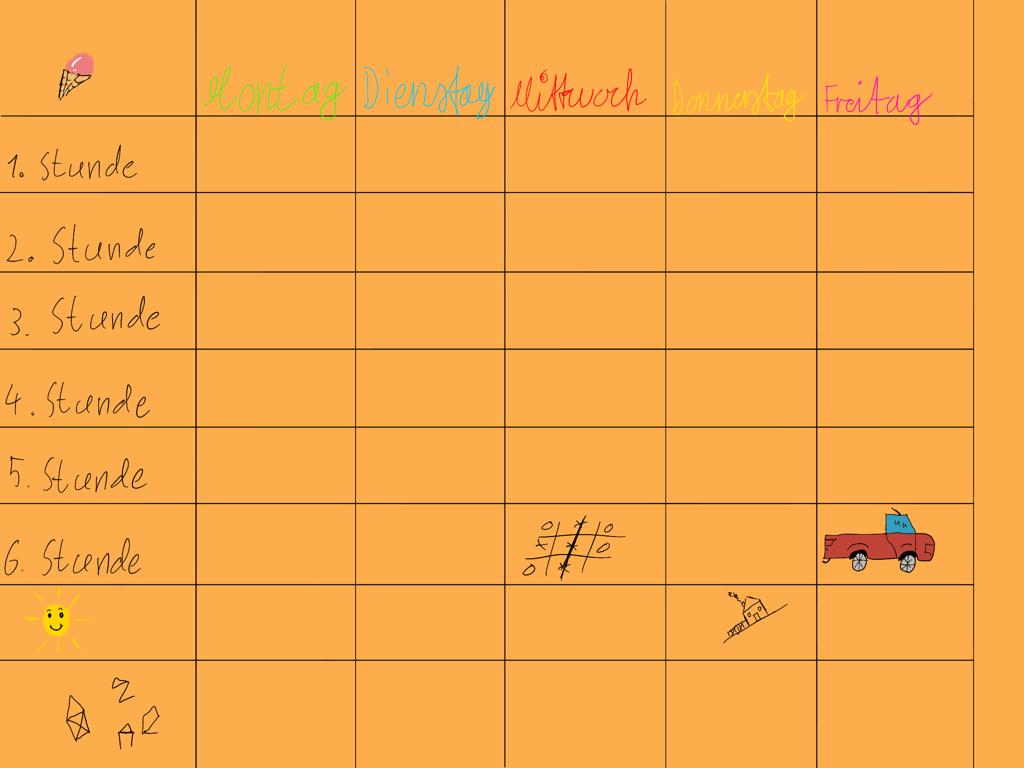 Montag Dienstag Mittwoch Donnerstag Freitag
1. Stunde
2. Stunde
3. Stunde
4. Stunde
5. Stunde
6. Stunde